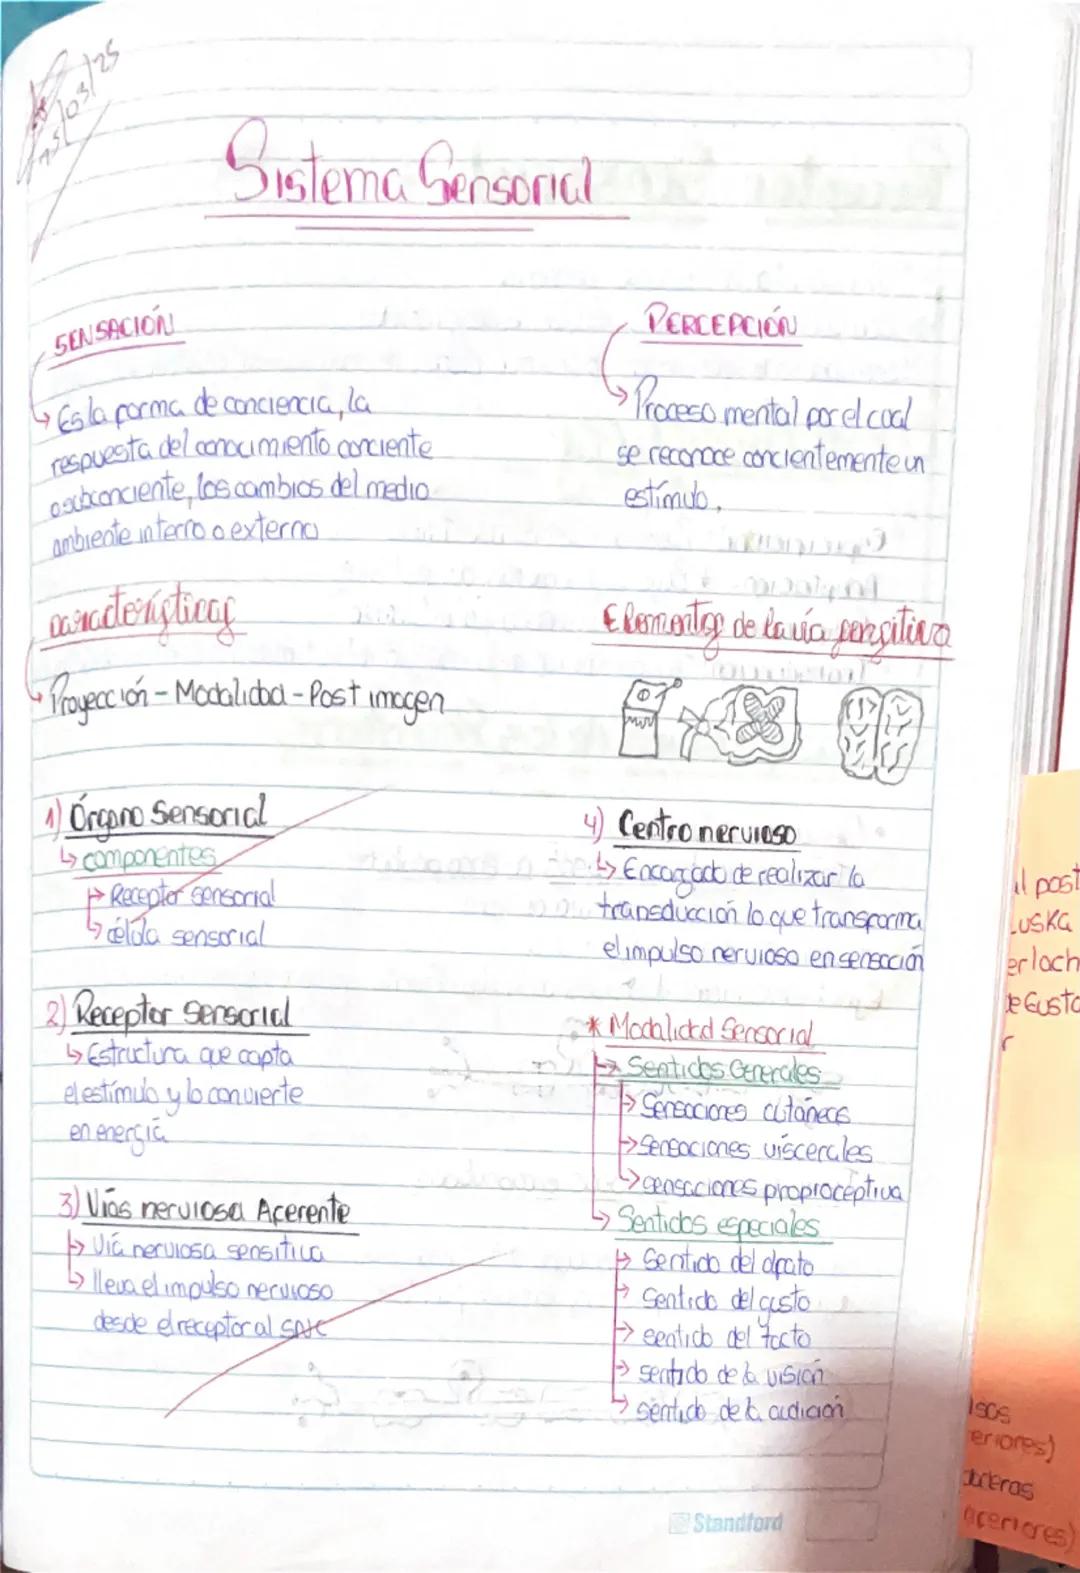 15/03/25
Sistema Sensorial
SENSACIÓN
↳ Es la forma de conciencia, la
respuesta del conocimiento conciente
o subconciente, los cambios del medio
ambiente interno o externo
PERCEPCIÓN
↳ Proceso mental por el cual
se reconoce concientemente un
estímulo.
características
↳ Proyección - Modalidad - Post imagen
Elementos de la vía sensitiva
1) Órgano Sensorial
↳ componentes
↳ Receptor sensorial
↳ célula sensorial
2) Receptor Sensorial
↳ Estructura que capta
el estímulo y lo convierte
en energía
3) Vías nerviosa Aferente
↳ Vía nerviosa sensitiva
↳ lleva el impulso nervioso
desde el receptor al SNC
4) Centro nervioso
↳ Encargado de realizar la
transducción lo que transforma
el impulso nervioso en sensación
* Modalidad Sensorial
↳ Sentidos Generales
↳ Sensaciones cutáneas
↳ Sensaciones viscerales
↳ sensaciones propioceptiva
↳ Sentidos especiales
↳ Sentido del olfato
↳ Sentido del gusto
↳ sentido del tacto
↳ sentido de la visión
↳ sentido de la audición
Standford
al post
LUSKA
erlach
de Gusto
r
eriores)